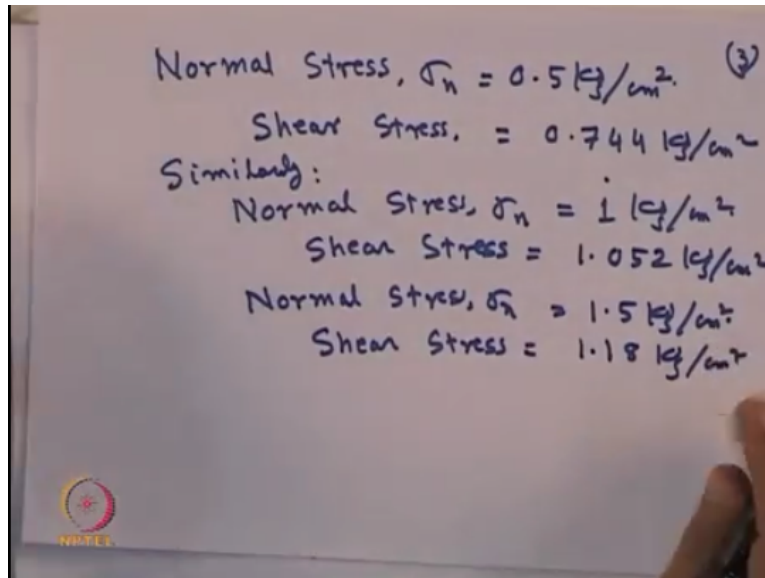 (3)
Normal Stress, σn = 0.5 kg/cm².
Shear Stress. = 0.744 kg/cm²
Similarly:
Normal Stress, σn = 1 kg/cm²
Shear Stress = 1.052 kg/cm²
Normal Stress, σn = 1.5 kg/cm².
Shear Stress = 1.18 kg/cm²
NPTEL